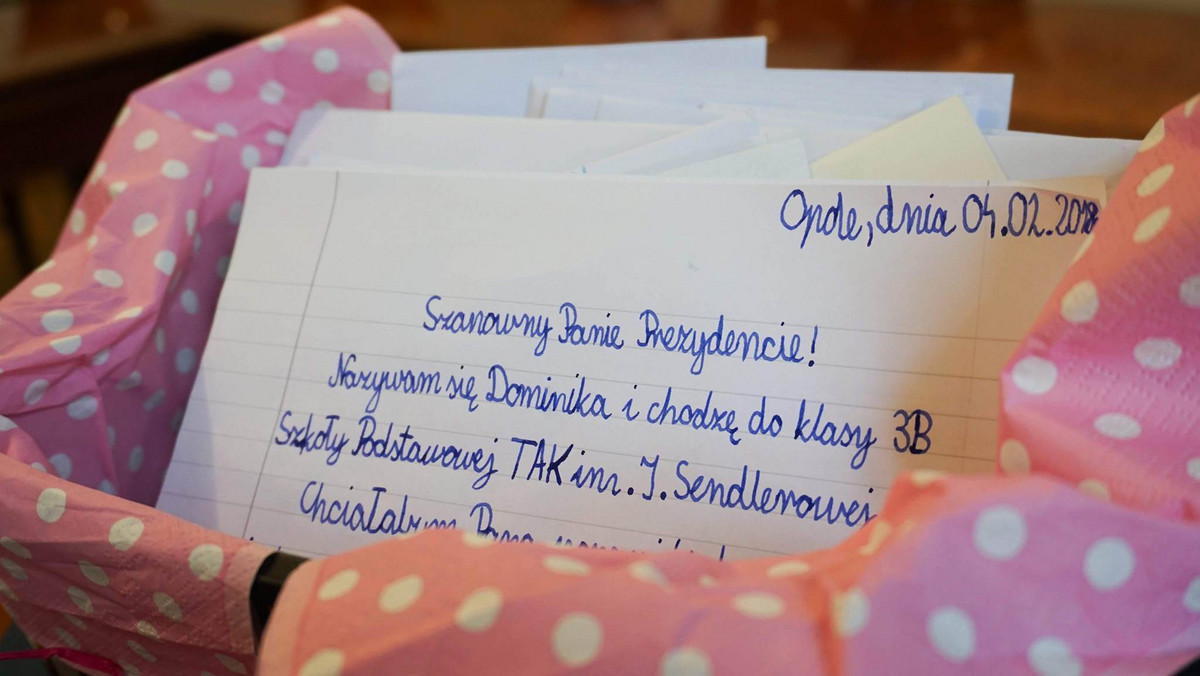 Opole, dnia 04.02.2018
Szanowny Panie Prezydencie!
Nazywam się Dominika i chodzę do klasy 3B
Szkoły Podstawowej TAK im. I. Sendlerowej
Chciałabym Pana